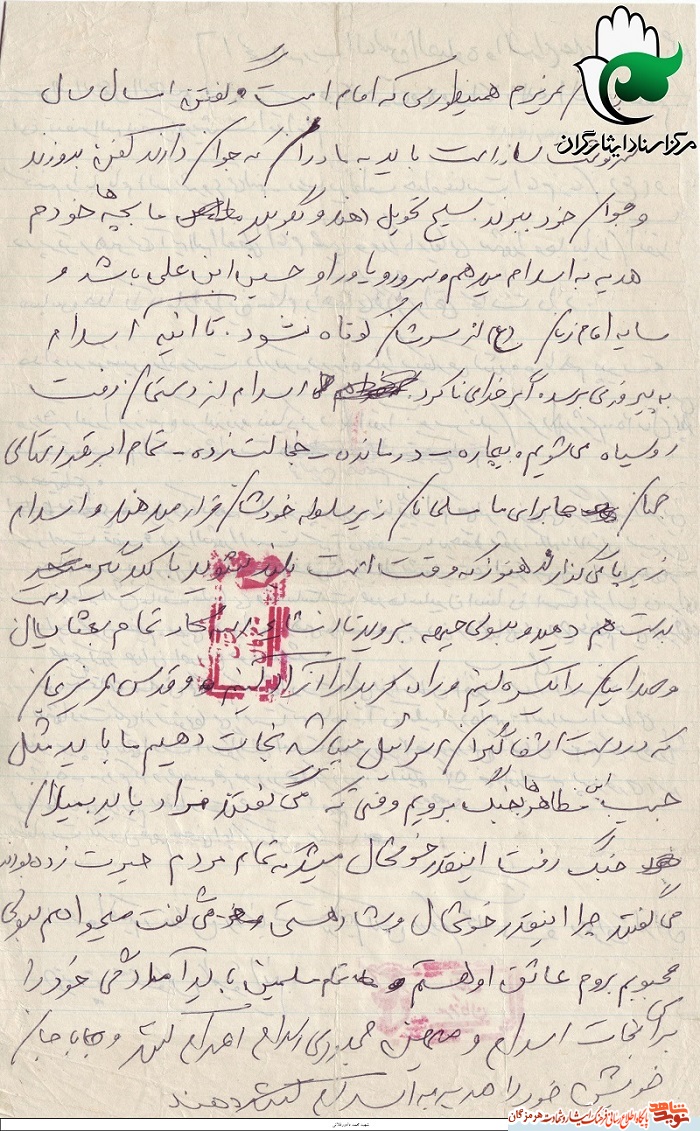 مرکز اسناد ایثارگران
عزیزم همینطوری که امام امت گفتن امسال سال
سرنوشت ساز است باید به مادران که جوان دارند کفن بدوزند
و جوان خود ببرند بسیج تحویل دهند و بگویند ما بچه ها خودم
هدیه به اسلام میدهم و سرور و یاور او حسین ابن علی باشد و
سایه امام زمان (عج) از سرشان کوتاه نشود. تا اینکه اسلام
به پیروزی برسد، اگر خدای ناکرده اسلام از دستمان رفت
روسیاه می شویم، بیچاره - درمانده - خجالت زده - تمام ابرقدرتهای
جهان برای ما مسلمانان زیر سلطه خودشان قرار میدهند و اسلام
زیر پا می گذارند هنوز که وقت است بلند شوید با یکدیگر
دست هم دهید و بسوی جبهه بروید تا انشاء الله تمام بعثیان
و صدامیان را کنیم و راه کربلا را آزاد کنیم و قدس عزیزمان
که در دست اشغالگران اسرائیل میباشد نجات دهیم ما باید مثل
حبیب ابن مظاهر ها بجنگ برویم وقتی که می گفتند فردا باید بمیدان
جنگ رفت اینقدر خوشحال میشد که تمام مردم حیرت زده بودند
می گفتند چرا اینقدر خوشحال و شاد هستی می گفت میخواهم بسوی
محبوبم بروم عاشق او هستم تمام مسلمین باید آمادگی خود را
برای نجات اسلام و میهن جمهوری اسلام اعلام کنند و با جان
خویش خود را هدیه به اسلام کنند
شهید محمد
نوید شاهد
پایگاه اطلاع رسانی فرهنگ ایثار و شهادت هرمزگان